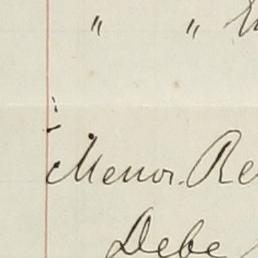 " "
Menor. Re
Debe